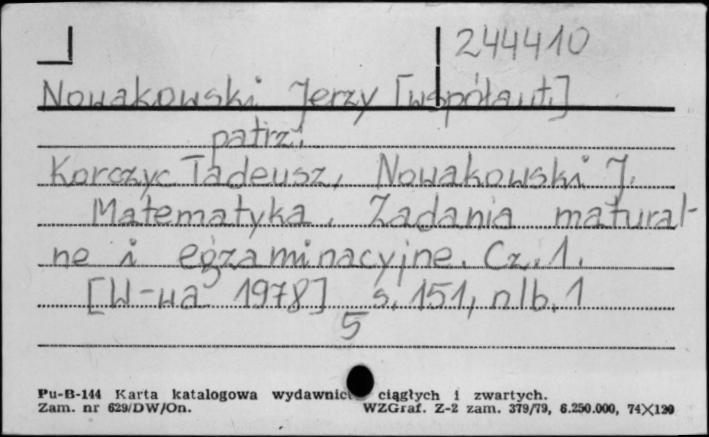 244410
Nowakowski Jerzy [współaut.]
patrz:
Korczyc Tadeusz, Nowakowski J.
Matematyka. Zadania matural-
ne i egzaminacyjne. Cz. 1.
[W-wa 1978] s. 151, nlb. 1
5
Pu-B-144 Karta katalogowa wydawnic ciągłych i zwartych.
Zam. nr 629/DW/On. WZGraf. Z-2 zam. 379/79, 6.250.000, 74X120